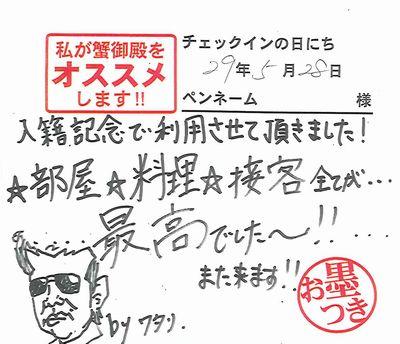 私が蟹御殿を
オススメ
します!!
チェックインの日にち
29年5月28日
ペンネーム 様
入籍記念で利用させて頂きました!
☆部屋☆料理☆接客 全てが…
最高でした〜!!…
また来ます!!
by ワタリ.
お墨つき